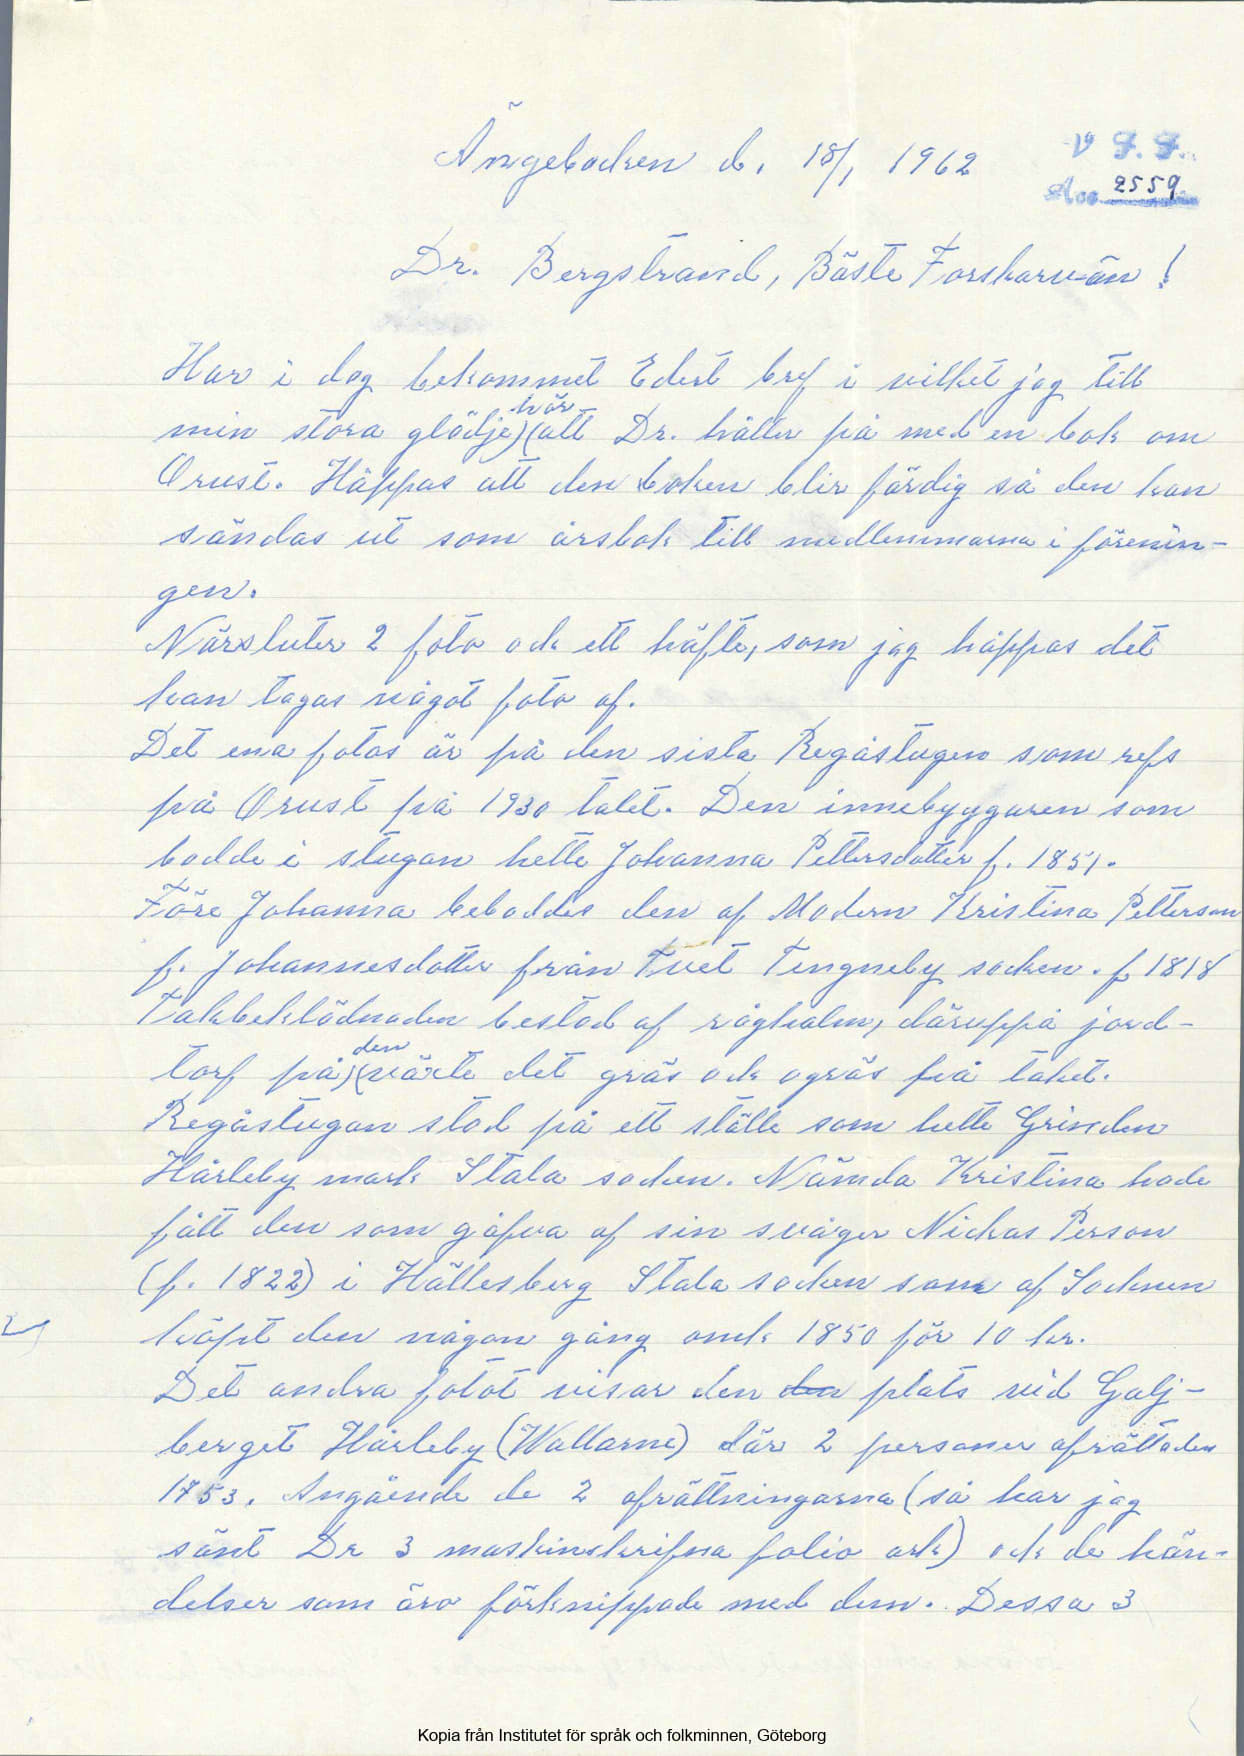 Ängebacken d. 18/1 1962
V F. F.
Acc 2559
Dr. Bergstrand, Bäste Forskarvän!
Har i dag bekommet Edert bref i vilket jag till
hör
min stora glädje)(att Dr. håller på med en bok om
Orust. Håppas att den boken blir färdig så den kan
sändas ut som årsbok till medlemmarna i förenin-
gen.
Närsluter 2 foto och ett häfte, som jag håppas det
kan tagas något foto af.
Det ena fotos är på den sista Regåstugen som refs
på Orust på 1930 talet. Den innebyggaren som
bodde i stugan hette Johanna Pettersdotter f. 1851.
Före Johanna beboddes den af Modern Kristina Petterson
f. Johannesdotter från Tvet Tengneby socken. f 1818
Takbeklädnaden bestod af råghalm, däruppå jord-
den
torf på)(växte det gräs och ogräs på taket.
Regåstugan stod på ett ställe som hette Grinden
Hårleby mark Stala socken. Nämda Kristina hade
fått den som gåfva af sin svåger Nickas Person
(f. 1822) i Hällesberg Stala socken som af Socknen
köpt den någon gång omk 1850 för 10 kr.
Det andra fotot visar den den plats vid Galj-
berget Hårleby (Wallarne) där 2 personer afrättades
1753. Angående de 2 afrättningarna (så har jag
sänt Dr 3 maskinskrifna folio ark) och de hän-
delser som äro förknippade med dem. Dessa 3
Kopia från Institutet för språk och folkminnen, Göteborg